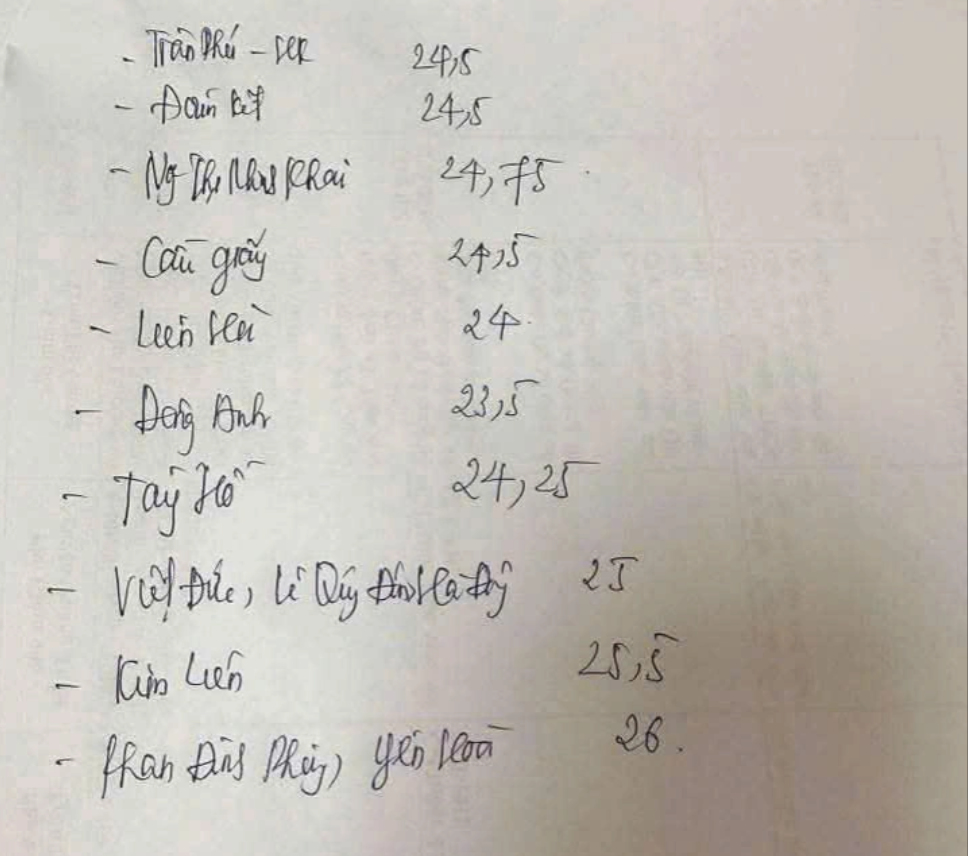 - Trần Phú - HK 24,5
- Đoàn kết 24,5
- Ng Thị Minh Khai 24,75
- Cầu giấy 24,5
- Liên Hà 24
- Đông Anh 23,5
- Tây Hồ 24,25
- Việt Đức, Lê Quý Đôn Hà Đông 25
- Kim Liên 25,5
- Phan Đình Phùng, Yên Hoà 26.